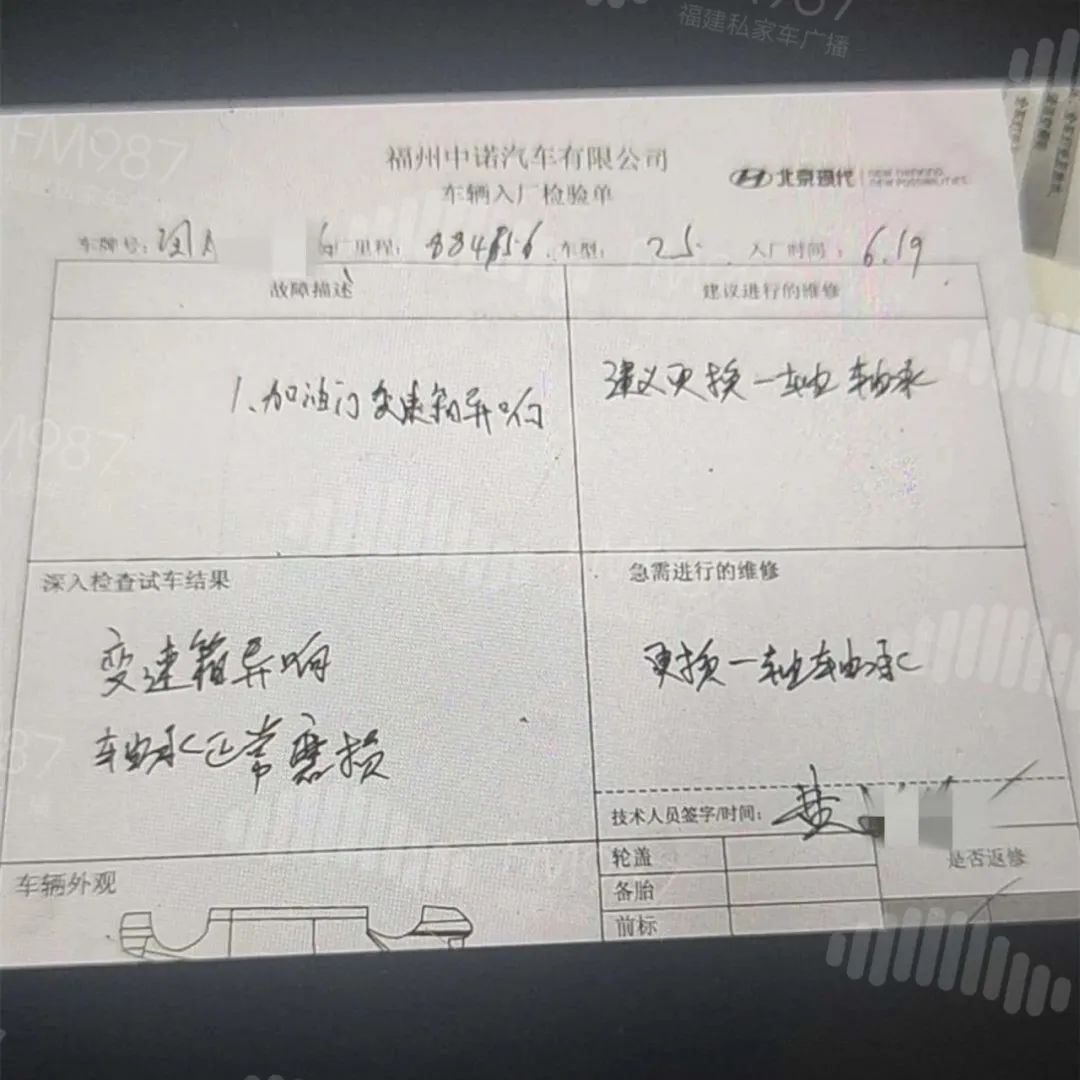 福建私家车广播
FM987
福州中诺汽车有限公司
车辆入厂检验单
北京现代 NEW THINKING. NEW POSSIBILITIES.
车牌号: 闽A 入厂里程: 车型: 25 入厂时间: 6.19
故障描述
建议进行的维修
1.加油门变速箱异响
建议更换一轴轴承
深入检查试车结果
急需进行的维修
变速箱异响
轴承正常磨损
更换一轴轴承
技术人员签字/时间:
轮盖
是否返修
备胎
前标
车辆外观